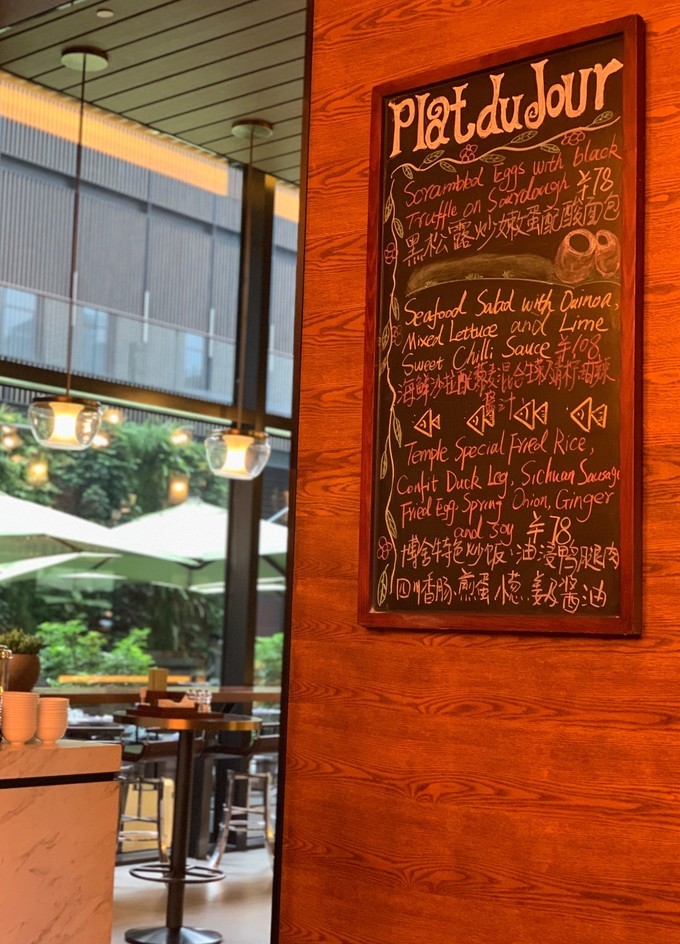 Plat du Jour
Scrambled Eggs with black
Truffle on Sourdough ¥78
黑松露炒嫩蛋配酸面包
Seafood Salad with Quinoa,
Mixed Lettuce and Lime
Sweet Chilli Sauce ¥108
海鲜沙拉配藜麦混合球
酱汁
Temple Special Fried Rice,
Confit Duck Leg, Sichuan Sausage
Fried Egg, Spring Onion, Ginger
and Soy ¥78
博舍特色炒饭,油浸鸭腿肉
四川香肠、煎蛋、葱、姜及酱油